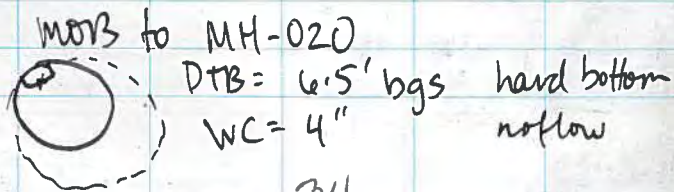 MOB to MH-020
DTB= 6.5' bgs hard bottom
WC= 4" no flow